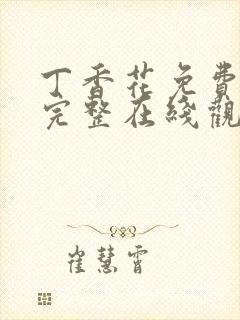 丁香花免費
完整在綫觀
崔慧霄